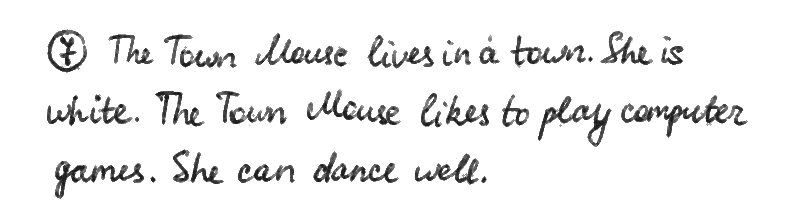 7 The Town Mouse lives in a town. She is
white. The Town Mouse likes to play computer
games. She can dance well.